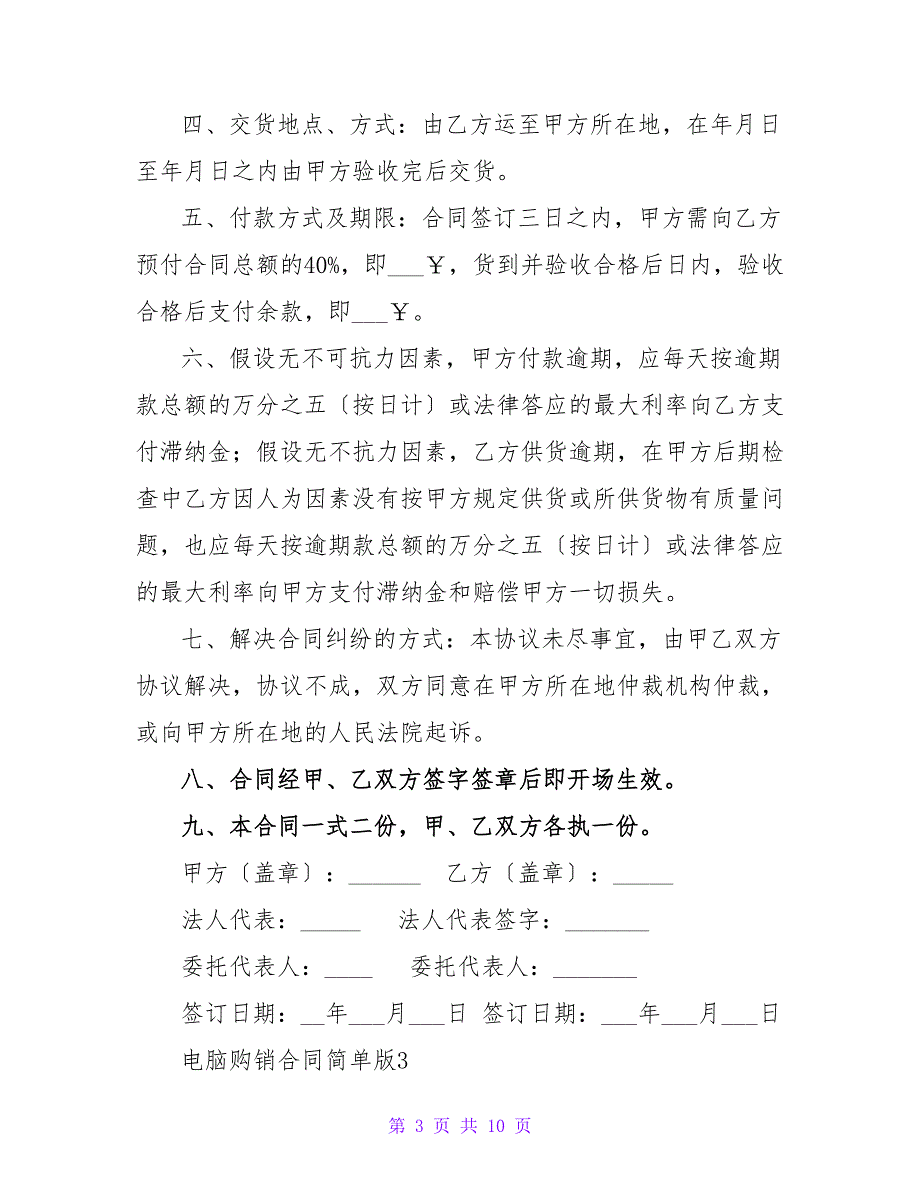 四、交货地点、方式：由乙方运至甲方所在地，在年月日
至年月日之内由甲方验收完后交货。
五、付款方式及期限：合同签订三日之内，甲方需向乙方
预付合同总额的40%，即___￥，货到并验收合格后日内，验收
合格后支付余款，即___￥。
六、假设无不可抗力因素，甲方付款逾期，应每天按逾期
款总额的万分之五〔按日计〕或法律答应的最大利率向乙方支
付滞纳金；假设无不抗力因素，乙方供货逾期，在甲方后期检
查中乙方因人为因素没有按甲方规定供货或所供货物有质量问
题，也应每天按逾期款总额的万分之五〔按日计〕或法律答应
的最大利率向甲方支付滞纳金和赔偿甲方一切损失。
七、解决合同纠纷的方式：本协议未尽事宜，由甲乙双方
协议解决，协议不成，双方同意在甲方所在地仲裁机构仲裁，
或向甲方所在地的人民法院起诉。
八、合同经甲、乙双方签字签章后即开场生效。
九、本合同一式二份，甲、乙双方各执一份。
甲方〔盖章〕：______ 乙方〔盖章〕：_____
法人代表：_____ 法人代表签字：_______
委托代表人：____ 委托代表人：_______
签订日期：__年___月___日 签订日期：___年___月___日
电脑购销合同简单版3
第 3 页 共 10 页